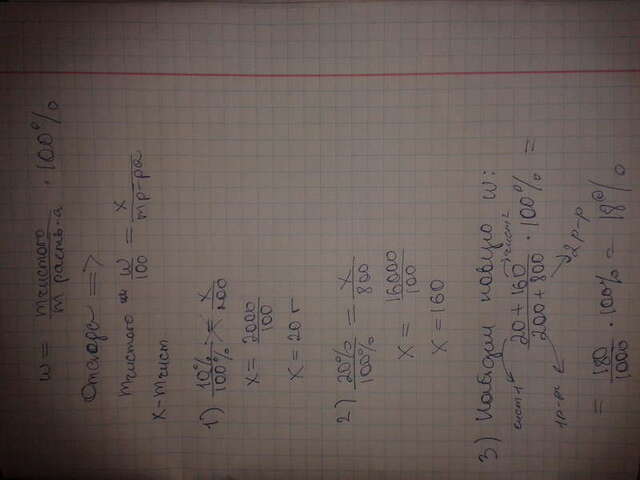 w = m чистого / m раств-а · 100%
Отсюда =>
m чистого = w / 100 = x / m р-ра
x - m чист
1) 10% / 100% = x / 200
x = 2000 / 100
x = 20 г
2) 20% / 100% = x / 800
x = 16000 / 100
x = 160
3) Найдем новую w:
чист1 20 + 160 чист2
200 + 800 · 100% =
1 р-р 2 р-р
= 180 / 1000 · 100% = 18%